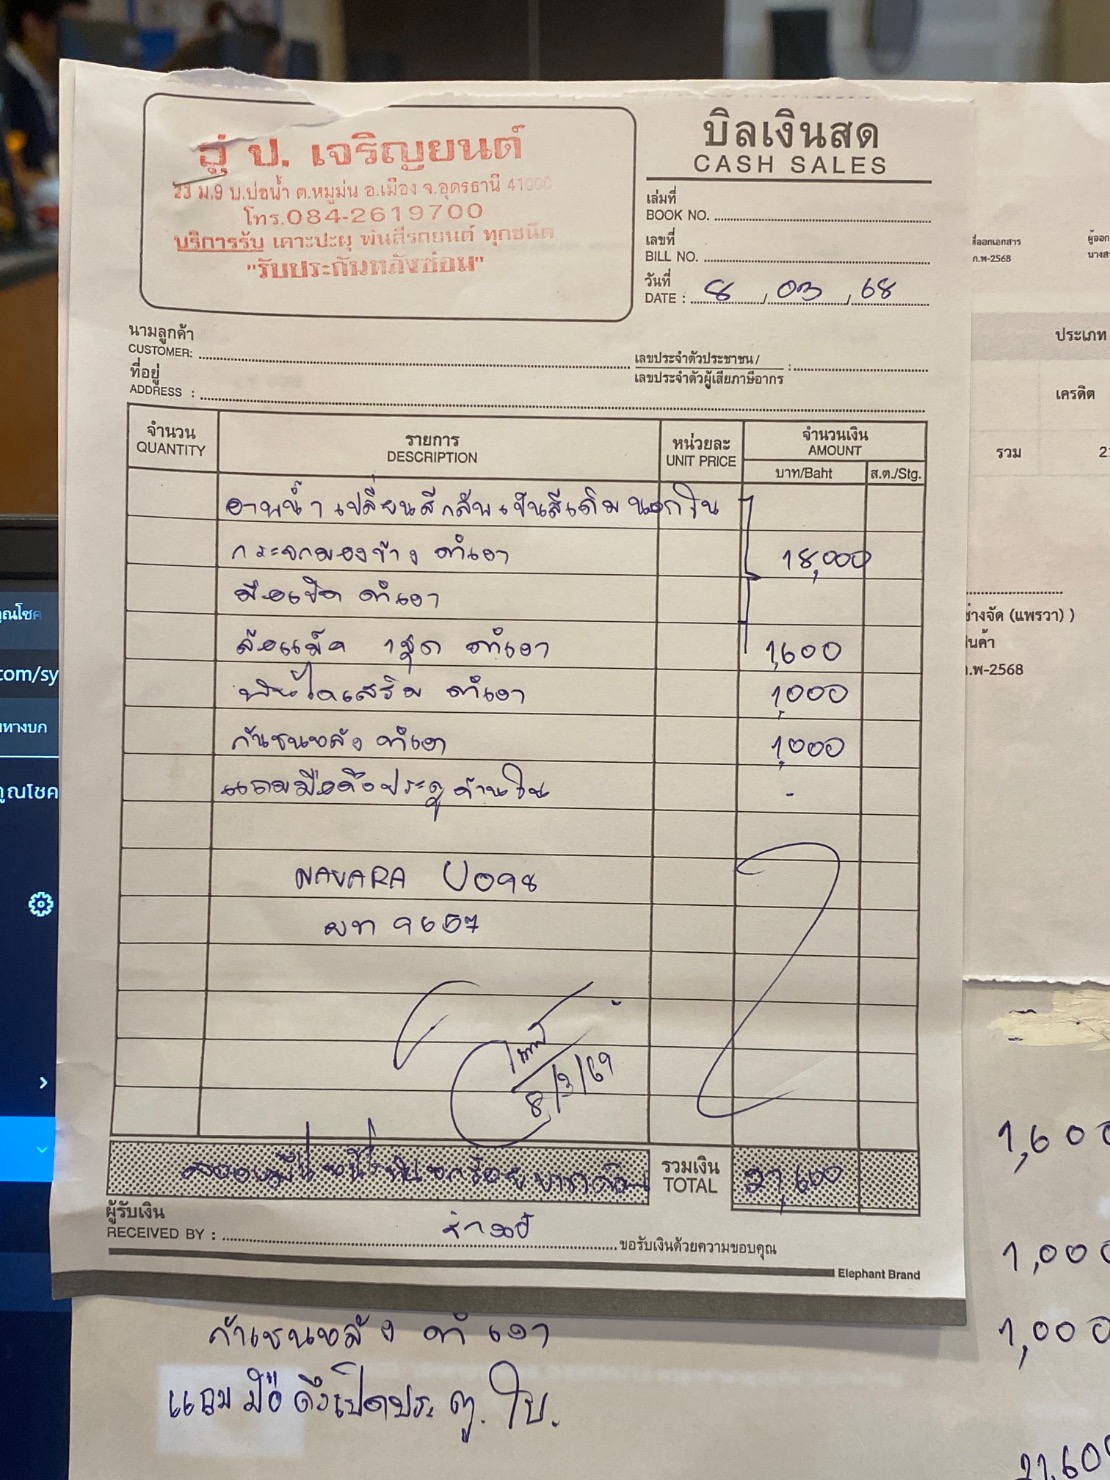 อู่ ป. เจริญยนต์
23 ม.9 บ.บ่อน้ำ ต.หมูม่น อ.เมือง จ.อุดรธานี 41000
โทร.084-2619700
บริการรับ เคาะปะผุ พ่นสีรถยนต์ ทุกชนิด
"รับประกันหลังซ่อม"
บิลเงินสด
CASH SALES
เล่มที่
BOOK NO.
เลขที่
BILL NO.
วันที่
DATE : 8 , 03 , 68
นามลูกค้า
CUSTOMER:
เลขประจำตัวประชาชน /
เลขประจำตัวผู้เสียภาษีอากร :
ที่อยู่
ADDRESS :
จำนวน
QUANTITY
รายการ
DESCRIPTION
หน่วยละ
UNIT PRICE
จำนวนเงิน
AMOUNT
บาท/Baht
ส.ต./Stg.
อาบน้ำ เปลี่ยนสีกลับเป็นสีเดิม นอกใน
กระจกมองข้าง ดำเงา 18,000
มือเปิด ดำเงา
ล้อแม็ค 1 ชุด ดำเงา 1,600
บันไดเสริม ดำเงา 1,000
กันชนหลัง ดำเงา 1,000
แถมมือดึงประตูด้านใน -
NAVARA
ผท 9657
8/3/69
รวมเงิน
TOTAL 21,600
ผู้รับเงิน
RECEIVED BY :
ขอรับเงินด้วยความขอบคุณ
Elephant Brand
กันชนหลัง ดำ เงา
แถม มือ ดึงเปิดประตู. ใน.
1,600
1,000
1,000
21,600
ที่ออกเอกสาร
ก.พ-2568
ผู้ออก
ประเภท
เครดิต
รวม
ช่างจัด (แพรวา) )
นค้า
.พ-2568
ูณโชค
com/sy
ทางบก
ูณโชค